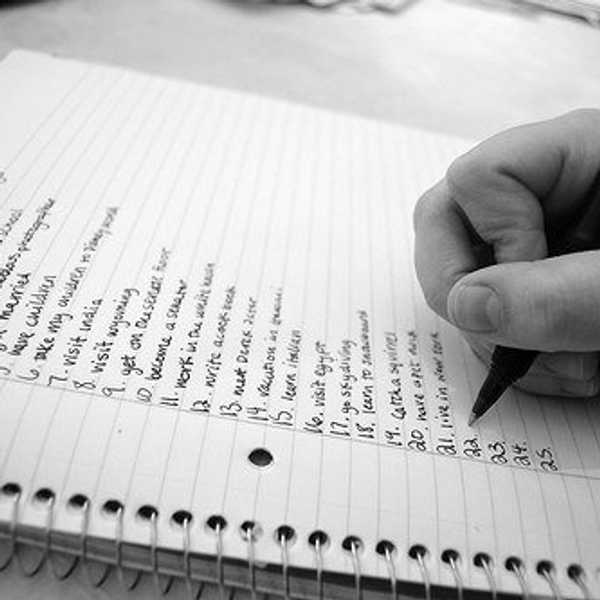 married
6. have children
7. take my children to disney world
8. visit India
9. visit wyoming
10. become a senator
11. work in the white house
12. write a cook book
13. meet Derek Jeter
14. vacation in Hawaii
15. learn italian
16. visit egypt
17. go skydiving
18. learn to snowboard
19. catch a squirrel
20. have a pet
21. live in new york
22.
23.
24.
25.